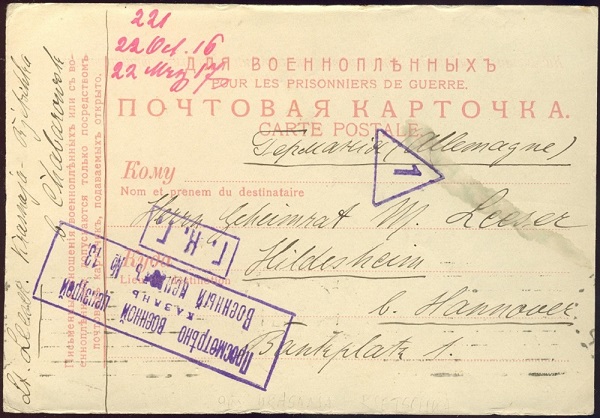 221
22 Oct. 16
22 Mrz 17
ДЛЯ ВОЕННОПЛѢННЫХЪ
POUR LES PRISONNIERS DE GUERRE.
ПОЧТОВАЯ КАРТОЧКА.
CARTE POSTALE.
Германія (Allemagne)
1
Кому
Nom et prenom du destinataire
Herrn Geheimrat M. Leeser
Куда
Hildesheim
b. Hannover
Bankplatz 1.
Г. К. Г.
Просмотрѣно военной цензурой
КАЗАНЬ
Военный Цензоръ № 13
Lt. Leeser Krasnaja-Rjetschka
b. Chabarowsk
Письменныя сношенія военноплѣнныхъ или съ во-
енноплѣнными допускаются только посредствомъ
почтовыхъ карточекъ, подаваемыхъ открыто.